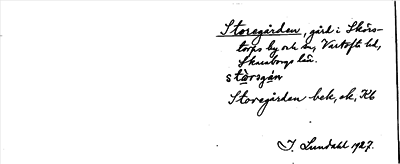 Storegården, gård i Skörs-
torps by och sn, Vartofta hd,
Skaraborgs län.
stòrsgán
Storegården bek, ek, Kb
I. Lundahl 1927.